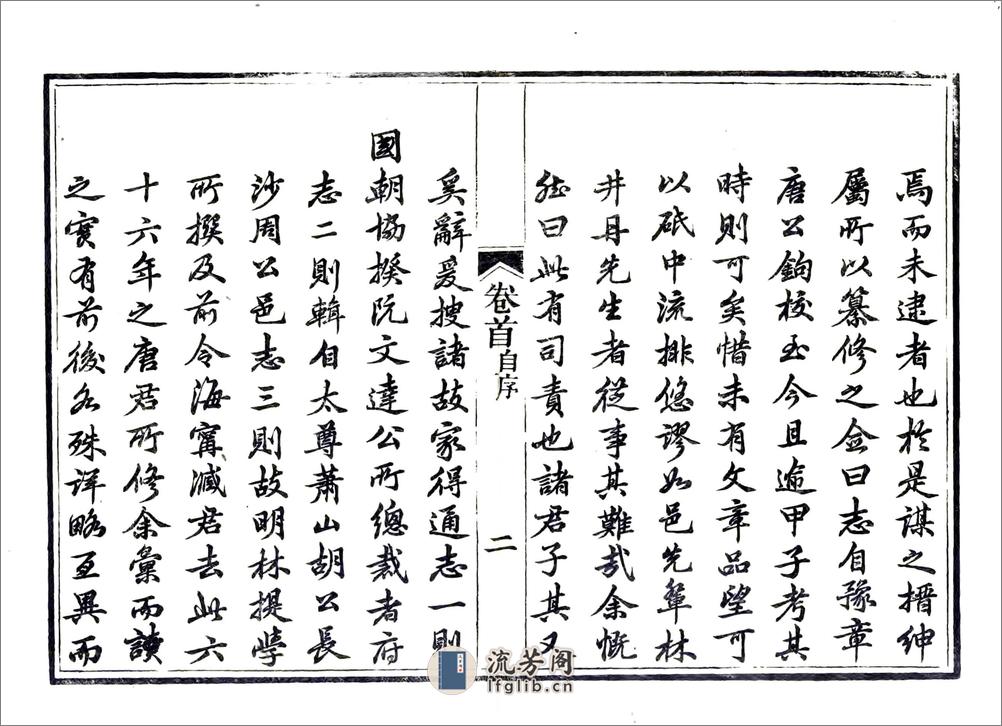 焉而未逮者也於是謀之搢紳
屬所以纂修之僉曰志自豫章
唐公鉤校至今且逾甲子考其
時則可矣惜未有文章品望可
以砥中流排悠謬如邑先輩林
井丹先生者從事其難哉余慨
然曰此有司責也諸君子其又
卷首 自序 二
奚辭爰搜諸故家得通志一則
國朝協揆阮文達公所總裁者府
志二則輯自太尊蕭山胡公長
沙周公邑志三則故明林提學
所撰及前令海甯臧君去此六
十六年之唐君所修余彙而讀
之實有前後各殊詳略互異而
流芳阁
lfglib.cn